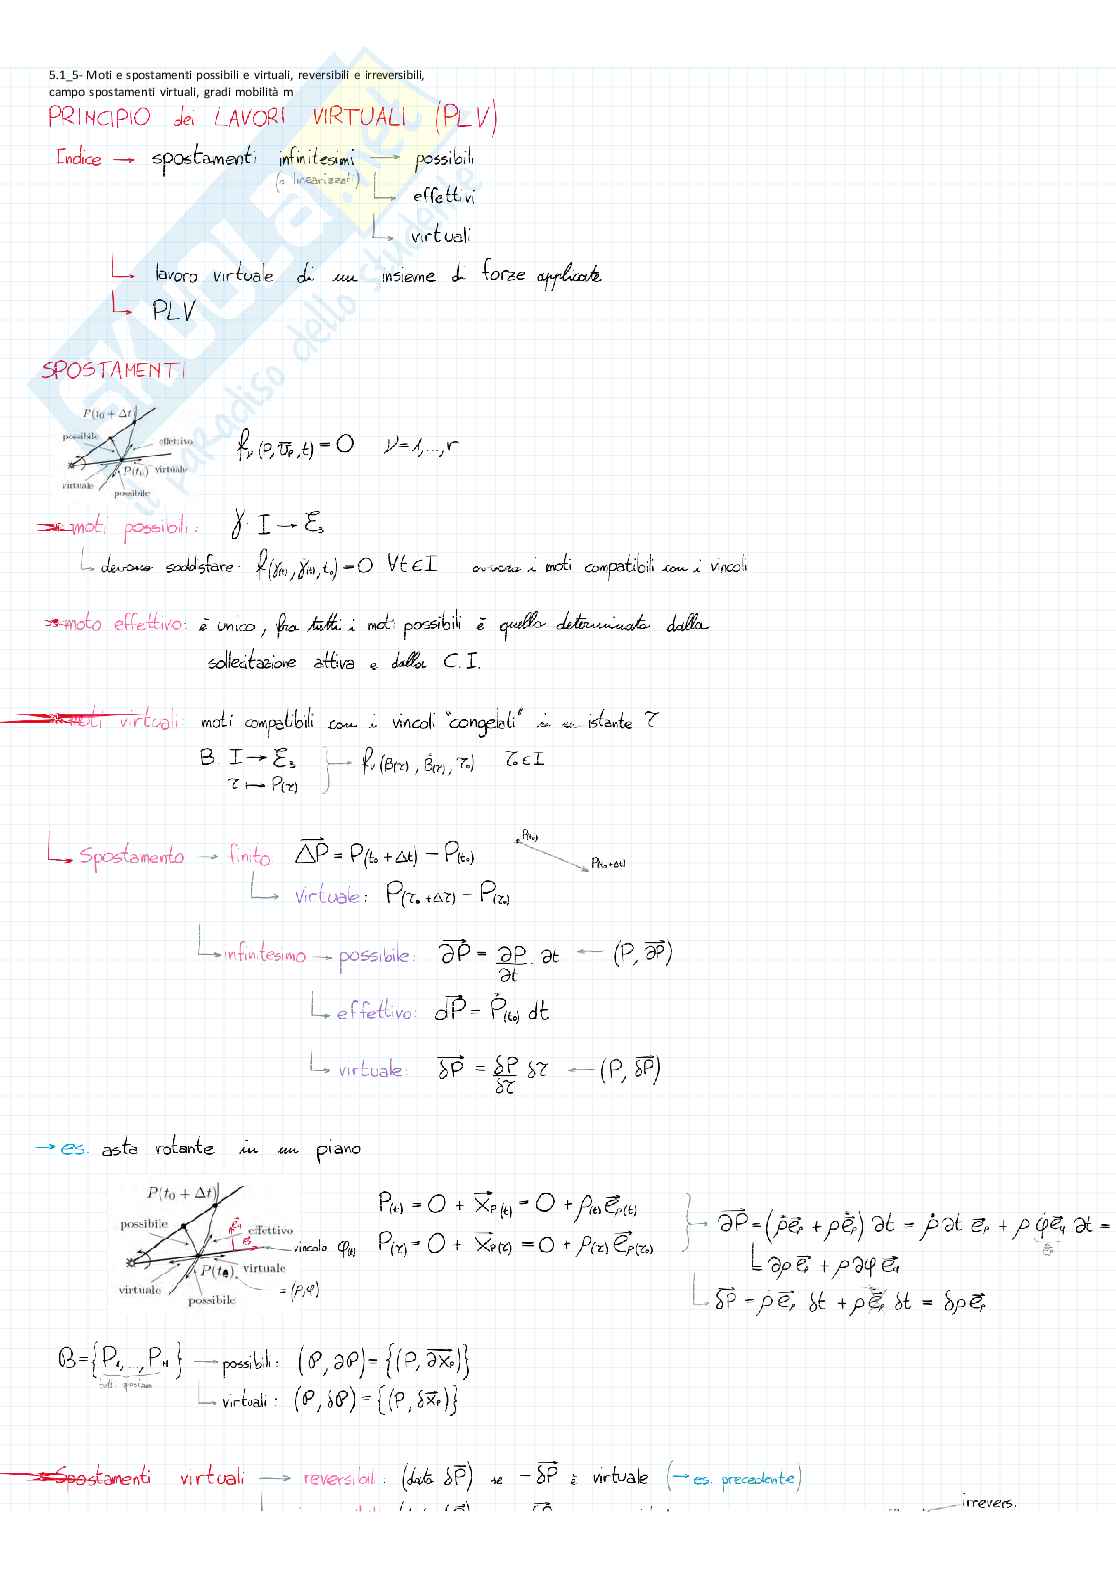 5.1_5- Moti e spostamenti possibili e virtuali, reversibili e irreversibili,
campo spostamenti virtuali, gradi mobilità m
PRINCIPIO dei LAVORI VIRTUALI (PLV)
Indice → spostamenti infinitesimi → possibili
(o linearizzati)
effettivi
virtuali
lavoro virtuale di un insieme di forze applicate
PLV
SPOSTAMENTI
P(t₀ + Δt)
possibile
effettivo
P(t₀) virtuale
virtuale
possibile
fᵥ(P, v̄ₚ, t) = 0 ν = 1,...,r
moti possibili: γ: I → Ɛ₃
devono soddisfare: f(γ(t), γ̇(t), t₀) = 0 ∀t∈I ovvero i moti compatibili con i vincoli
moto effettivo: è unico, fra tutti i moti possibili è quello determinato dalla
sollecitazione attiva e dalle C.I.
moti virtuali: moti compatibili con i vincoli "congelati" in un istante τ
B: I → Ɛ₃ → fᵥ(B(τ), Ḃ(τ), τ₀) τ₀∈I
τ ↦ P(τ)
Spostamento → finito ΔP = P(t₀ + Δt) − P(t₀)
P(t₀)
P(t₀+Δt)
virtuale: P(τ₀ + Δτ) − P(τ₀)
infinitesimo → possibile: ∂P = ∂P/∂t · ∂t ← (P, ∂P)
effettivo: dP = Ṗ(t₀) dt
virtuale: δP = δP/δτ δτ ← (P, δP)
→ es. asta rotante in un piano
P(t₀ + Δt)
possibile
effettivo
vincolo φ(t)
P(t₀) virtuale
virtuale
possibile
= (ρ,φ)
P(t) = O + xₚ(t) = O + ρ(t) eᵨ(t)
P(τ) = O + xₚ(τ) = O + ρ(τ) eᵨ(τ₀)
→ ∂P = (ρ̇eᵨ + ρėᵨ) ∂t = ρ̇ ∂t eᵨ + ρ φ̇ e_φ ∂t =
∂ρ eᵨ + ρ ∂φ e_φ
δP = ρ̇ eᵨ δt + ρ ėᵨ δt = δρ eᵨ
B = {P₁,...,P_N} → possibili: (P, ∂P) = {(P, ∂xₚ)}
virtuali: (P, δP) = {(P, δxₚ)}
Spostamenti virtuali → reversibili: (dato δP) se −δP è virtuale (→ es. precedente)
irrevers.
SKUOLA.net
il paradiso dello studente